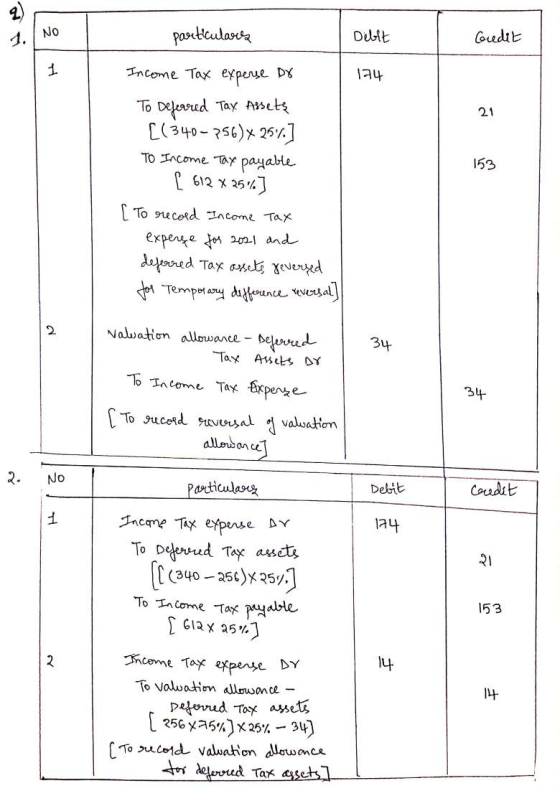 2)
1. NO particulars Debit Credit
1 Income Tax expense Dr 174
To Deferred Tax Assets 21
[(340 - 256) x 25%]
To Income Tax payable 153
[612 x 25%]
[To record Income Tax
expense for 2021 and
deferred Tax assets reversed
for Temporary difference reversal]
2 Valuation allowance - Deferred 34
Tax Assets Dr
To Income Tax Expense 34
[To record reversal of valuation
allowance]
2. NO particulars Debit Credit
1 Income Tax expense Dr 174
To Deferred Tax assets 21
[[(340 - 256) x 25%]
To Income Tax payable 153
[612 x 25%]
2 Income Tax expense Dr 14
To Valuation allowance - 14
Deferred Tax assets
[256 x 75%] x 25% - 34]
[To record valuation allowance
for deferred Tax assets]